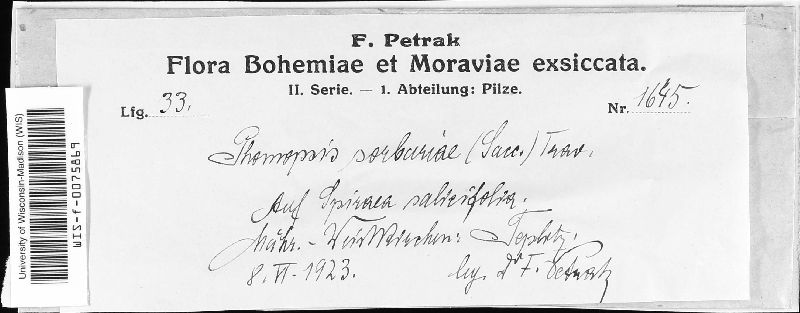 F. Petrak
Flora Bohemiae et Moraviae exsiccata.
II. Serie. — 1. Abteilung: Pilze.
Lfg. 33.
Nr. 1645.
Phomopsis sorbariae (Sacc.) Trav.
Auf Spiraea salicifolia.
Mähr.-Weisskirchen: Teplitz.
8. VI. 1923. leg. Dr F. Petrak
University of Wisconsin-Madison (WIS)
WIS-f-0075869